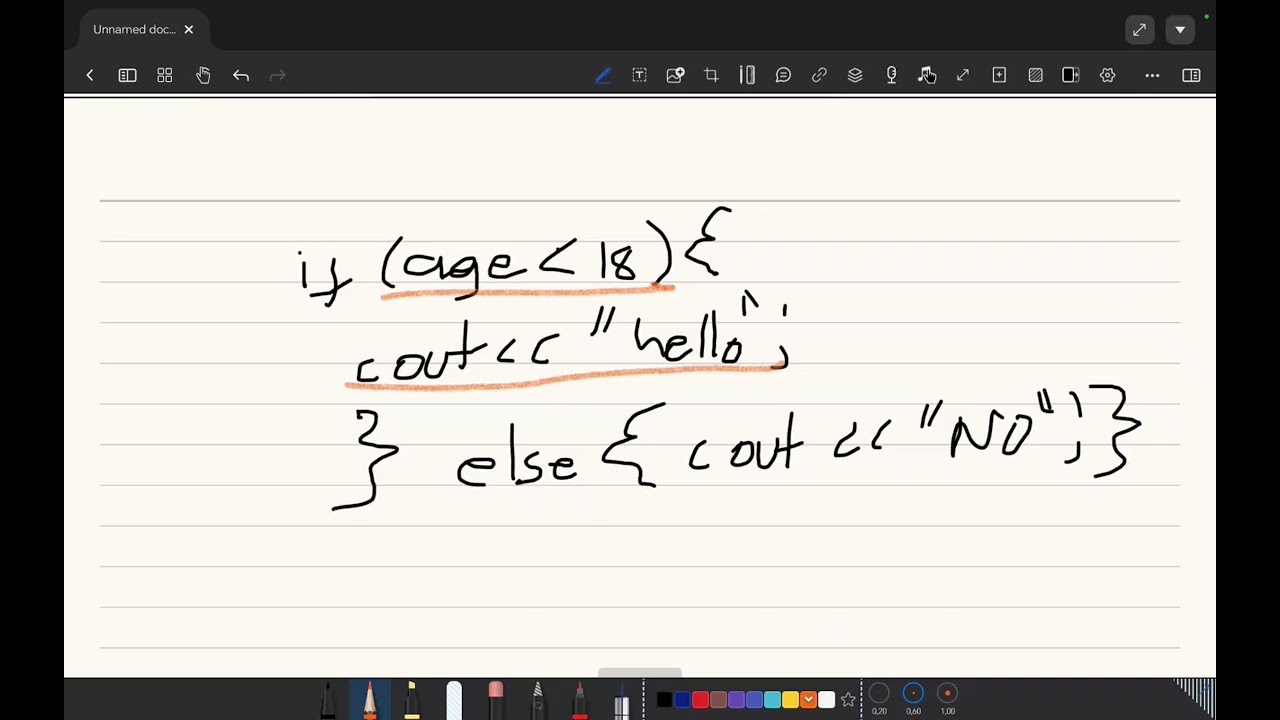 Unnamed doc...
if (age < 18) {
cout << "hello";
} else { cout << "NO"; }
0,20 0,60 1,00